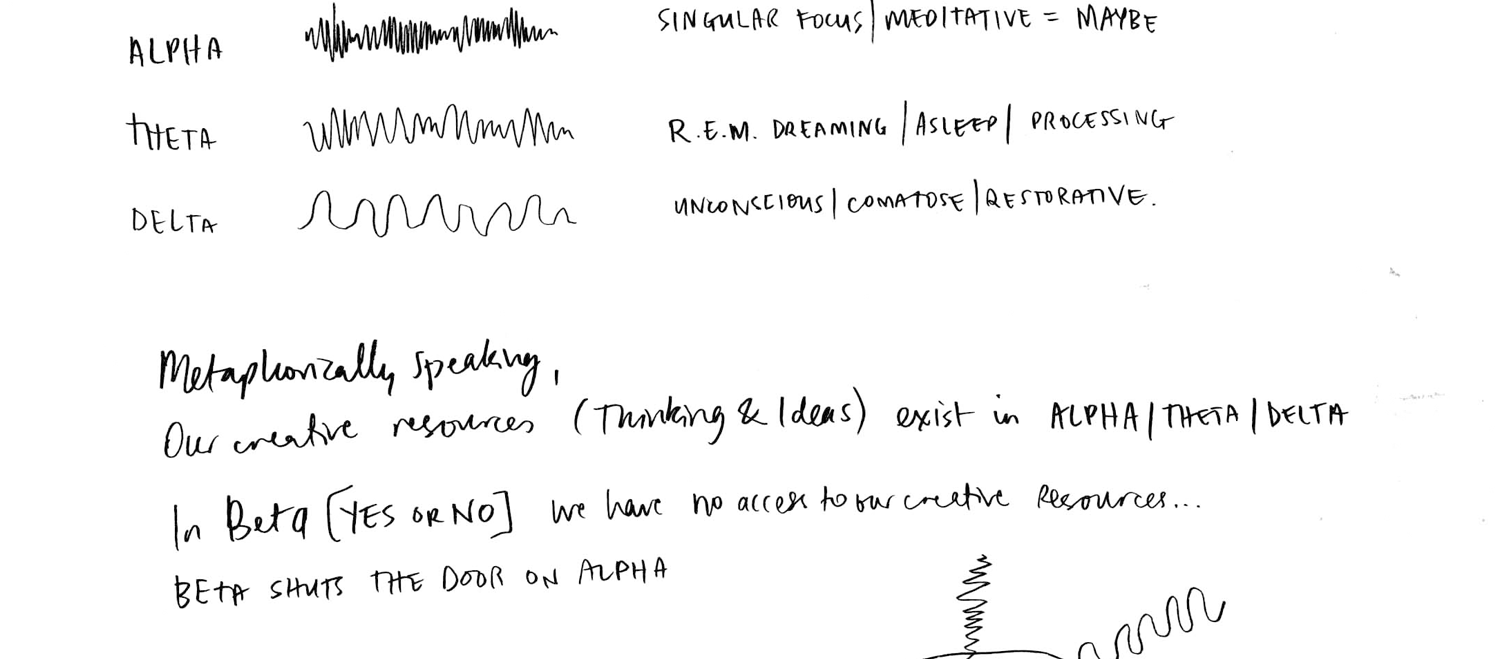 ALPHA SINGULAR FOCUS | MEDITATIVE = MAYBE
THETA R.E.M. DREAMING | ASLEEP | PROCESSING
DELTA UNCONSCIOUS | COMATOSE | RESTORATIVE.
Metaphorically speaking,
Our creative resources (Thinking & Ideas) exist in ALPHA | THETA | DELTA
In Beta [YES OR NO] we have no access to our creative Resources...
BETA SHUTS THE DOOR ON ALPHA